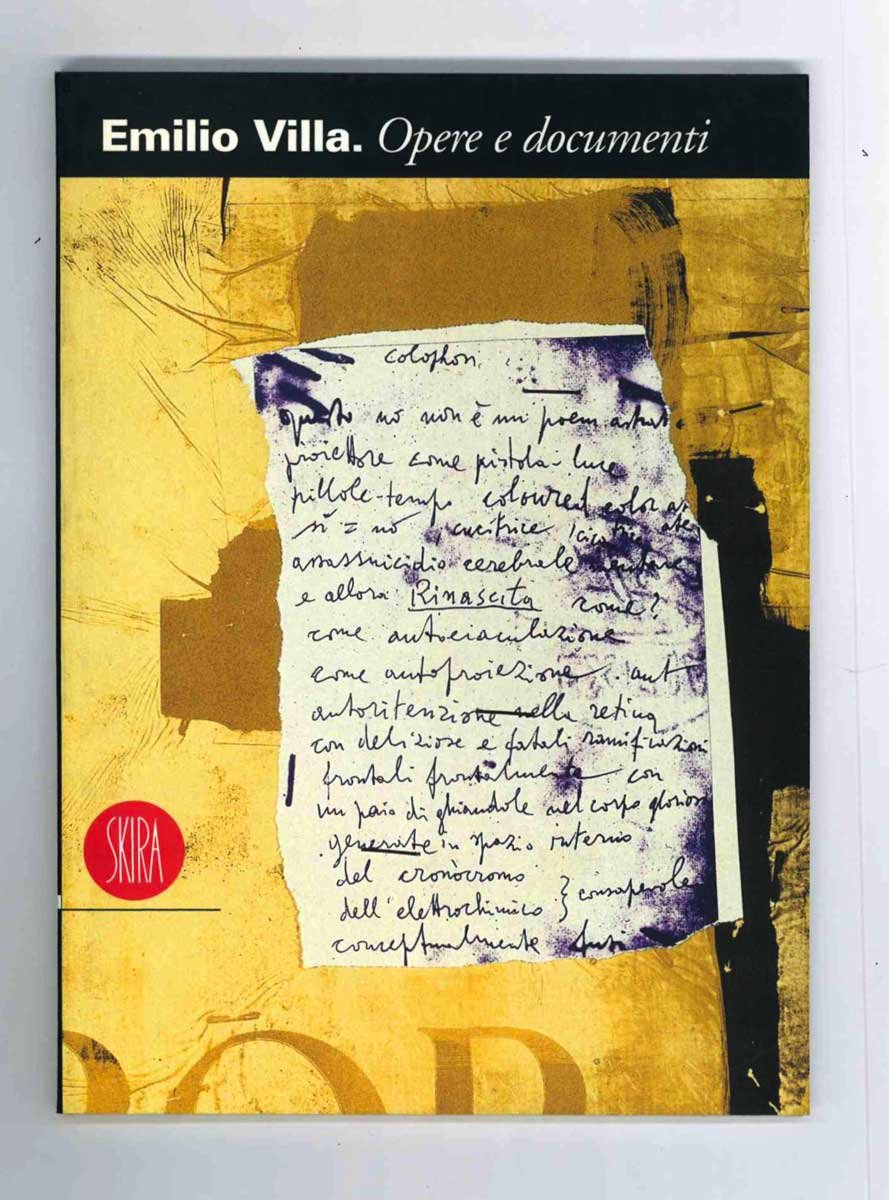 Emilio Villa. Opere e documenti
colophon
questo no non è un poem astrat
proiettore come pistola-luce
pillole-tempo coloured color
sì = no, cucitrice
assassuicidio cerebrale mentare
e allora Rinascita come?
come autoeiaculazione
come autoproiezione. aut
autoritenzione nella retina
con deliziose e fatali ramificazioni
frontali frontalmente con
un paio di ghiandole nel corpo glorioso
generate in spazio interno
del cronòcromo
dell'elettrochimico } consapevole
conceptualmente
SKIRA